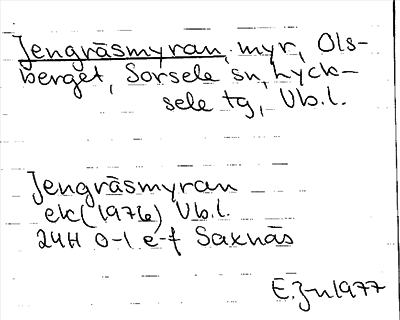 Jengräsmyran, myr, Ols-
berget, Sorsele sn, Lyck-
sele tg, Vb.l.
Jengräsmyran
ek (1976) Vb.l.
24H 0-1 e-f Saxnäs
E. J-n 1977